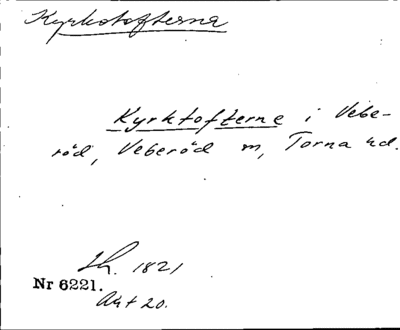 Kyrkotofterna
Kyrktofterne i Vebe-
röd, Veberöd m, Torna hd.
Sh. 1821
Nr 6221.
Akt 20.